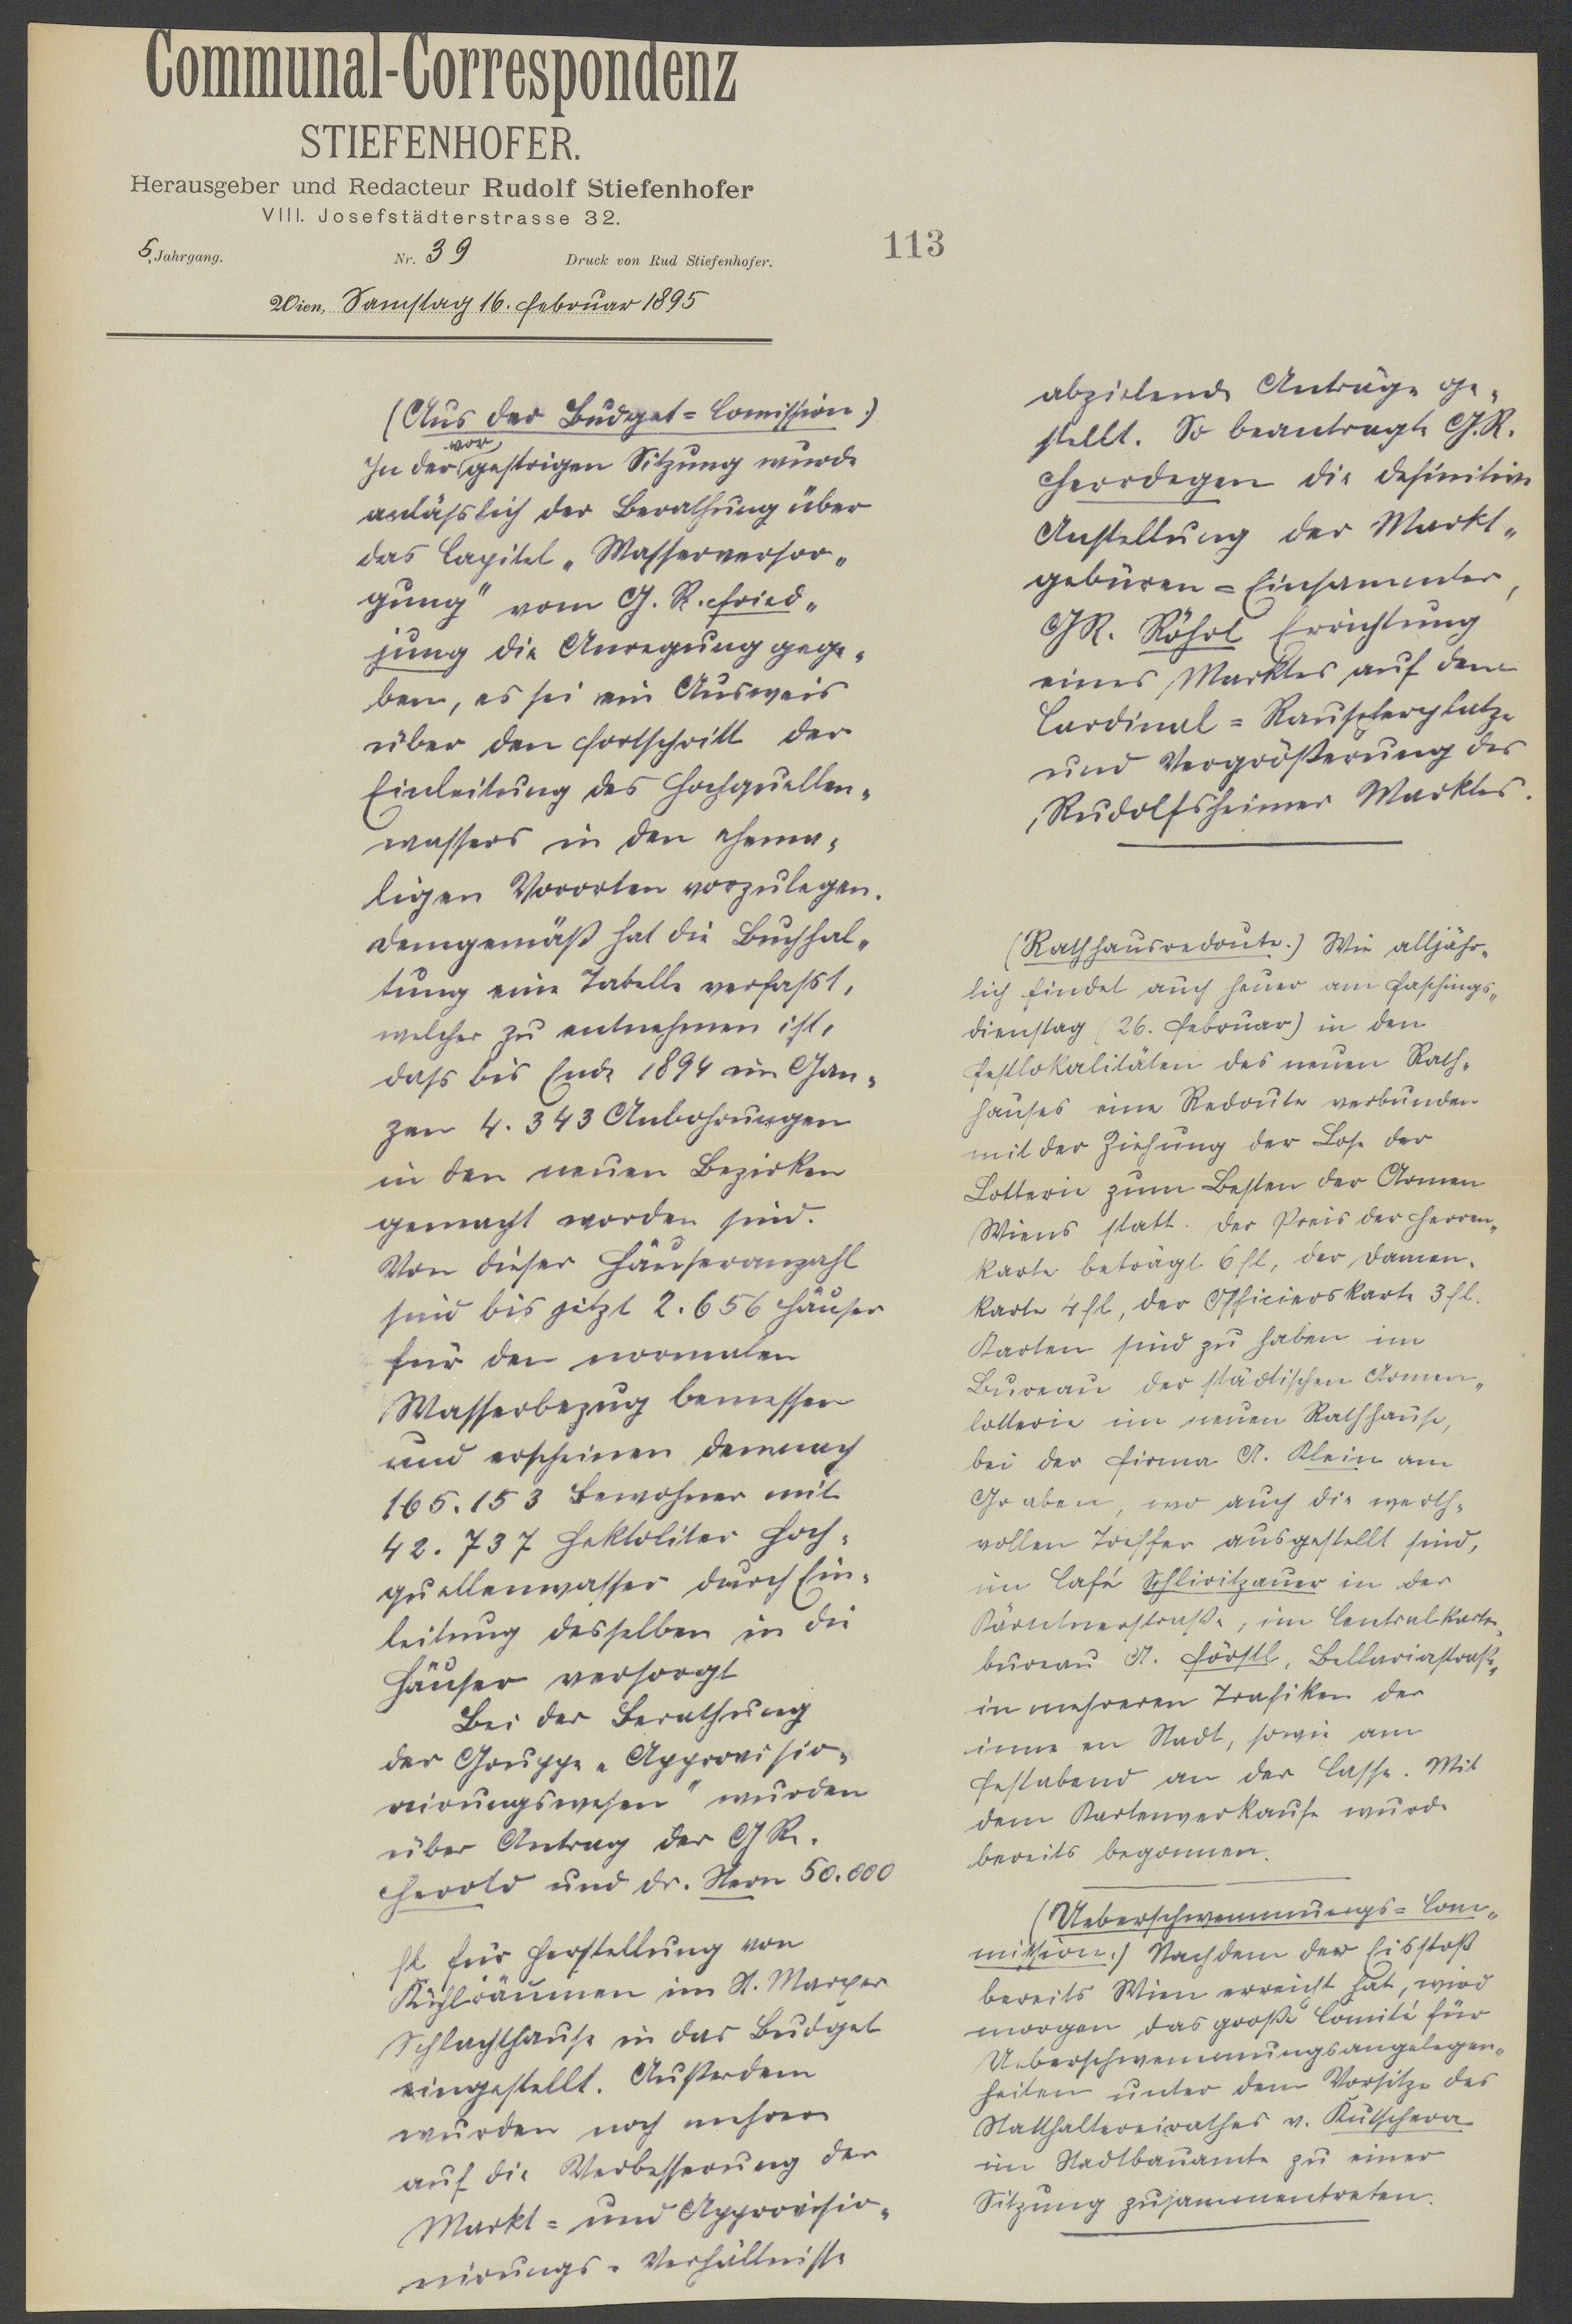 Communal-Correspondenz
STIEFENHOFER.
Herausgeber und Redacteur Rudolf Stiefenhofer
VIII. Josefstädterstrasse 32.
5. Jahrgang. Nr. 39 Druck von Rud Stiefenhofer.
Wien, Samstag 16. Februar 1895
113
(Aus der Budget=Comission.)
In der vorgestrigen Sitzung wurde
anläßlich der Berathung über
das Capitel „Wasserversor„
gung" vom G. R. Fried„
jung die Anregung gege„
ben, es sei ein Ausweis
über den Fortschritt der
Einleitung des Hochquellen„
wassers in den ehema„
ligen Vororten vorzulegen.
Demgemäß hat die Buchhal„
tung eine Tabelle verfasst,
welcher zu entnehmen ist,
dass bis Ende 1894 im Gan„
zen 4.343 Anbohrungen
in den neuen Bezirken
gemacht worden sind.
Von dieser Häuseranzahl
sind bis jetzt 2.656 Häuser
für den normalen
Wasserbezug bemessen
und erscheinen demnach
165.153 Bewohner mit
42.737 Hektoliter Hoch„
quellenwasser durch Ein„
leitung desselben in die
Häuser versorgt
Bei der Berathung
der Gruppe „Approvisio„
nirungswesen" wurden
über Antrag der GR.
Herold und Dr. Stern 50.000
fl für Herstellung von
Kühlräumen im St. Marxer
Schlachthause in das Budget
eingestellt. Außerdem
wurden noch mehrere
auf die Verbesserung der
Markt= und Approvisio„
nirungs=Verhältnisse
abzielende Anträge ge„
stellt. So beantragte G.R.
Herrdegen die definitive
Anstellung der Markt„
gebüren=Einsammler,
GR. Röhrl Errichtung
eines Marktes auf dem
Cardinal=Rauscherplatze
und Vergrößerung des
Rudolfsheimer Marktes.
(Rathhausredoute.) Wie alljähr„
lich findet auch heuer am Faschings„
dienstag (26. Februar) in den
Festlokalitäten des neuen Rath„
hauses eine Redoute verbunden
mit der Ziehung der Lose der
Lotterie zum Besten der Armen
Wiens statt. Der Preis der Herren„
karte beträgt 6 fl, der Damen„
karte 4 fl, der Officierskarte 3 fl.
Karten sind zu haben im
Bureau der städtischen Armen„
lotterie im neuen Rathhause,
bei der Firma A. Klein am
Graben, wo auch die werth„
vollen Treffer ausgestellt sind,
im Café Schliritzauer in der
Kärntnerstraße, im Centralkarten„
bureau A. Förstl, Bellariastraße,
in mehreren Trafiken der
inneren Stadt, sowie am
Festabend an der Casse. Mit
dem Kartenverkaufe wurde
bereits begonnen.
(Ueberschwemmungs=Com„
mission.) Nachdem der Eisstoß
bereits Wien erreicht hat, wird
morgen das große Comité für
Ueberschwemmungsangelegen„
heiten unter dem Vorsitze des
Statthaltereirathes v. Kutschera
im Stadtbauamte zu einer
Sitzung zusammentreten.